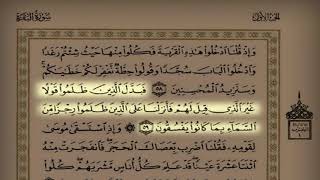 سورة البقرة
الجزء الأول
وَإِذْ قُلْنَا ادْخُلُوا هَٰذِهِ الْقَرْيَةَ فَكُلُوا مِنْهَا حَيْثُ شِئْتُمْ رَغَدًا
وَادْخُلُوا الْبَابَ سُجَّدًا وَقُولُوا حِطَّةٌ نَغْفِرْ لَكُمْ خَطَايَاكُمْ
وَسَنَزِيدُ الْمُحْسِنِينَ ٥٨ فَبَدَّلَ الَّذِينَ ظَلَمُوا قَوْلًا
غَيْرَ الَّذِي قِيلَ لَهُمْ فَأَنْزَلْنَا عَلَى الَّذِينَ ظَلَمُوا رِجْزًا مِنَ
السَّمَاءِ بِمَا كَانُوا يَفْسُقُونَ ٥٩ وَإِذِ اسْتَسْقَىٰ مُوسَىٰ
لِقَوْمِهِ فَقُلْنَا اضْرِبْ بِعَصَاكَ الْحَجَرَ فَانْفَجَرَتْ مِنْهُ
اثْنَتَا عَشْرَةَ عَيْنًا قَدْ عَلِمَ كُلُّ أُنَاسٍ مَشْرَبَهُمْ كُلُوا